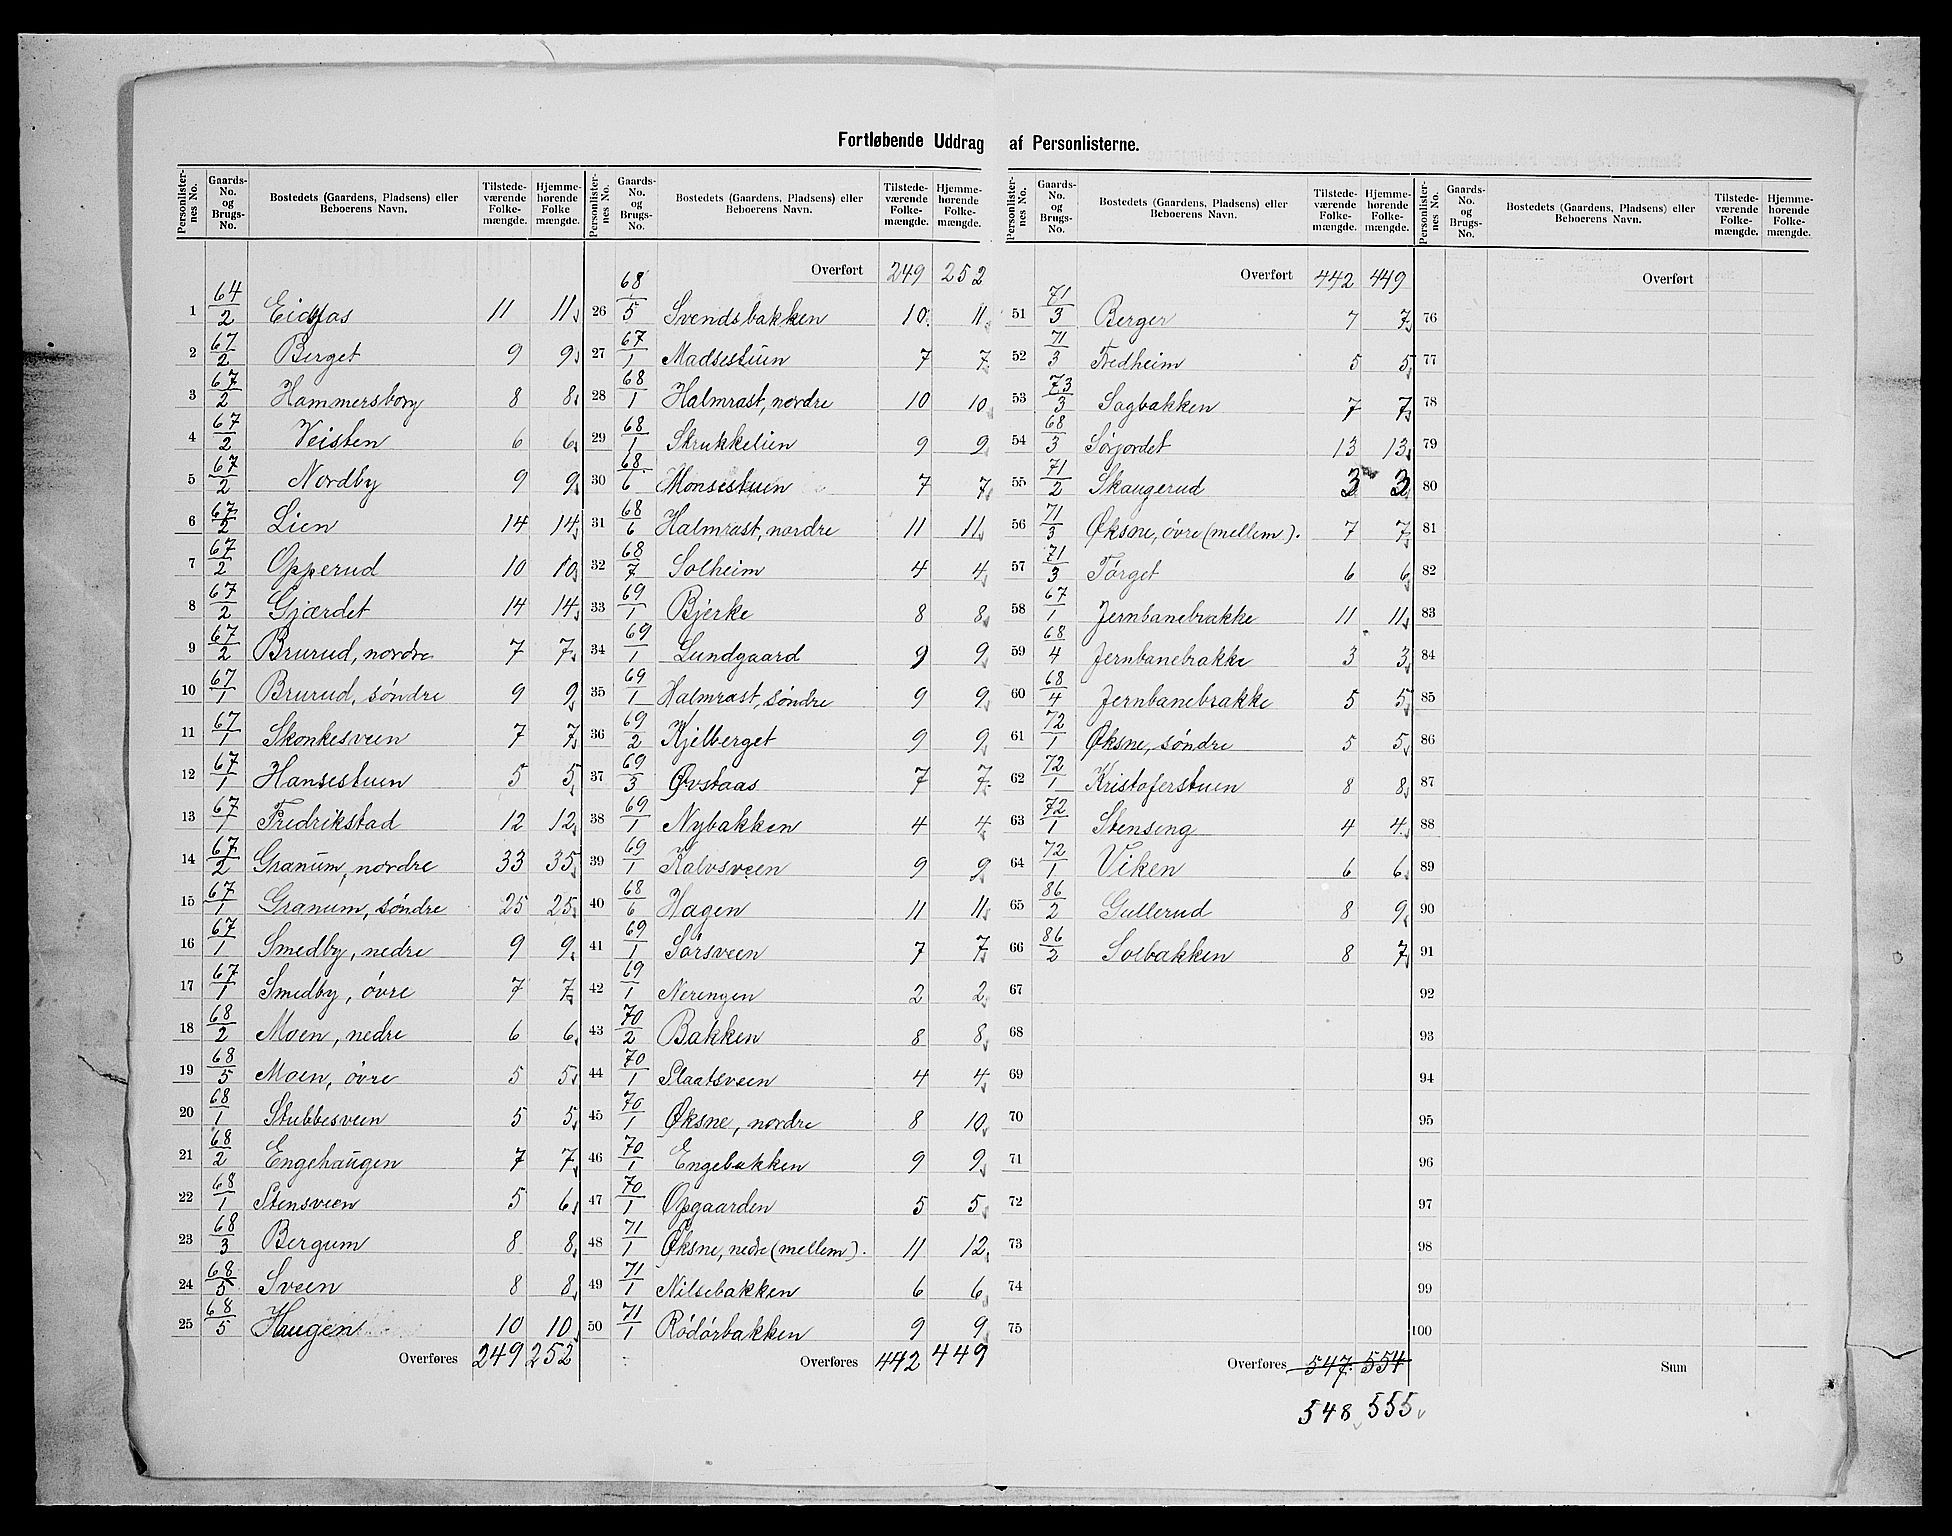 Fortløbende Uddrag af Personlisterne.
Personlister-nes No. | Gaards-No. og Brugs-No. | Bostedets (Gaardens, Pladsens) eller Beboerens Navn. | Tilstede-værende Folke-mængde. | Hjemme-hørende Folke mængde.
1 64/2 Eidsfos 11 11
2 67/2 Berget 9 9
3 67/2 Hammersborg 8 8
4 67/2 Veisten 6 6
5 67/2 Nordby 9 9
6 67/2 Lien 14 14
7 67/2 Opperud 10 10
8 67/2 Gjærdet 14 14
9 67/2 Brurud, nordre 7 7
10 67/1 Brurud, söndre 9 9
11 67/1 Skonkesveen 7 7
12 67/1 Hansestuen 5 5
13 67/1 Fredrikstad 12 12
14 67/2 Granum, nordre 33 35
15 67/1 Granum, söndre 25 25
16 67/1 Smedby, nedre 9 9
17 67/1 Smedby, övre 7 7
18 68/2 Moen, nedre 6 6
19 68/5 Moen, övre 5 5
20 68/1 Stubbesveen 5 5
21 68/2 Engehaugen 7 7
22 68/1 Stensveen 5 6
23 68/3 Bergum 8 8
24 68/5 Sveen 8 8
25 68/5 Haugen 10 10
Overføres 249 252
Personlister-nes No. | Gaards-No. og Brugs-No. | Bostedets (Gaardens, Pladsens) eller Beboerens Navn. | Tilstede-værende Folke-mængde. | Hjemme-hørende Folke-mængde.
Overført 249 252
26 68/5 Svendsbakken 10 11
27 67/1 Madsestuen 7 7
28 68/1 Halmrast, nordre 10 10
29 68/1 Strukkelien 9 9
30 68/6 Monsestuen 7 7
31 68/6 Halmrast, nordre 11 11
32 68/7 Solheim 4 4
33 69/1 Bjerke 8 8
34 69/1 Lundgaard 9 9
35 69/1 Halmrast, söndre 9 9
36 69/2 Kjelberget 9 9
37 69/3 Øvstaas 7 7
38 69/1 Nybakken 4 4
39 69/1 Kalvsveen 9 9
40 68/6 Hagen 11 11
41 69/1 Sörsveen 7 7
42 69/1 Nerengen 2 2
43 70/2 Bakken 8 8
44 70/1 Slaatsveen 4 4
45 70/1 Øksne, nordre 8 10
46 70/1 Engebakken 9 9
47 70/1 Opgaarden 5 5
48 71/1 Øksne, nedre (mellem). 11 12
49 71/1 Nilsebakken 6 6
50 71/1 Rödörbakken 9 9
Overføres 442 449
Personlister-nes No. | Gaards-No. og Brugs-No. | Bostedets (Gaardens, Pladsens) eller Beboerens Navn. | Tilstede-værende Folke-mængde. | Hjemme-hørende Folke-mængde.
Overført 442 449
51 71/3 Berger 7 7
52 71/3 Fredheim 5 5
53 73/3 Sagbakken 7 7
54 68/3 Sörjordet 13 13
55 71/2 Skaugerud 3 3
56 71/3 Øksne, övre (mellem). 7 7
57 71/3 Törget 6 6
58 67/1 Jernbanebrakke 11 11
59 68/4 Jernbanebrakke 3 3
60 68/4 Jernbanebrakke 5 5
61 72/1 Øksne, söndre 5 5
62 72/1 Kristoferstuen 8 8
63 72/1 Stenseng 4 4
64 72/1 Viken 6 6
65 86/2 Gullerud 8 9
66 86/2 Solbakken 8 7
67
68
69
70
71
72
73
74
75
Overføres 547 554
548 555
Personlister-nes No. | Gaards-No. og Brugs-No. | Bostedets (Gaardens, Pladsens) eller Beboerens Navn. | Tilstede-værende Folke-mængde. | Hjemme-hørende Folke-mængde.
Overført
76
77
78
79
80
81
82
83
84
85
86
87
88
89
90
91
92
93
94
95
96
97
98
99
100
Sum